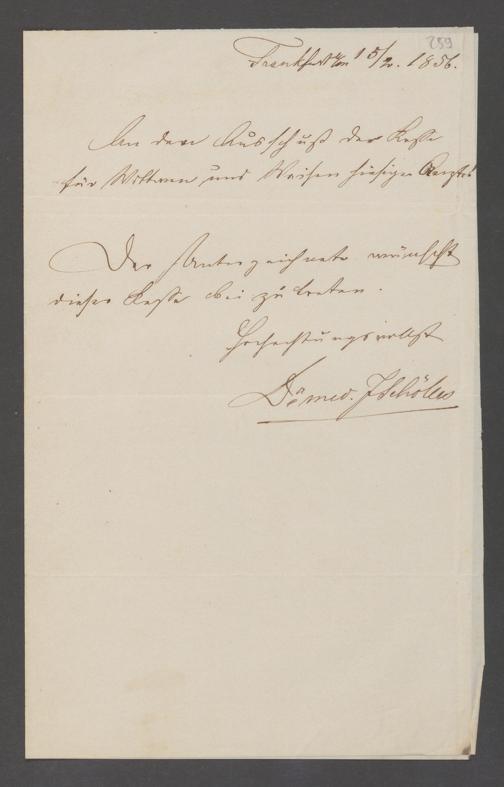 259
Frankfurt a/m 15/2. 1856.
An den Ausschuß der Kasse
für Wittwen und Waisen hiesiger Aerzte
Der Unterzeichnete wünscht
dieser Kasse bei zu treten.
Hochachtungsvollst
Dr med. J Schölles